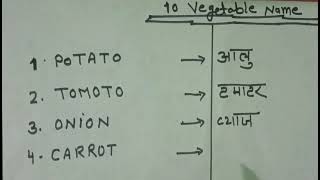 10 Vegetable Name
1. POTATO → आलु
2. TOMOTO → टमाटर
3. ONION → प्याज
4. CARROT →